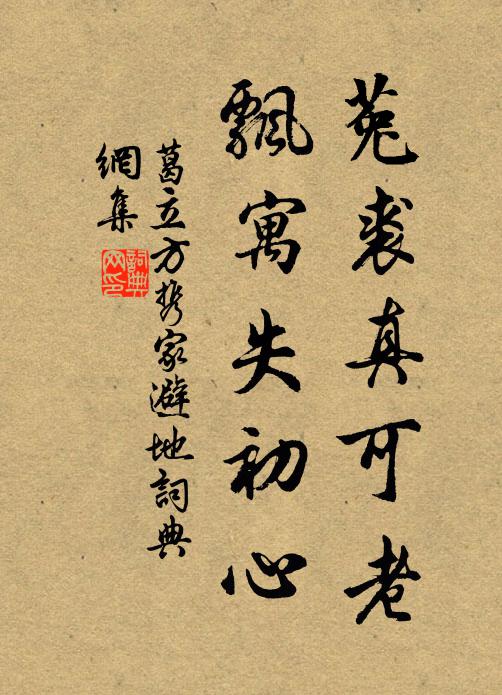 菟裘真可老
飄寓失初心
葛立方携家避地詞典
網集
詞典
网印